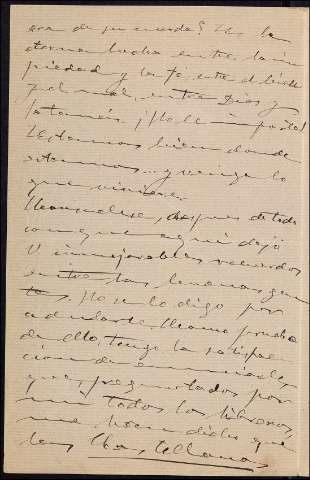 era de su cuerda? Es la
eterna lucha entre la im
piedad y la fé, entre el bien
y el mal, entre Dios y
Satanás. ¡No le importe!
Estamos bien donde
estamos... y venga lo
que viniere.
Consuélese, después de todo
con que aquí dejó
V. inmejorables recuerdos
entre las buenas gen
tes. No se lo digo por
adularle. Como prueba
de ello, tengo la satisfac
ción de anunciarle,
que, preguntados por
mí todos los libreros,
me han dicho que
las